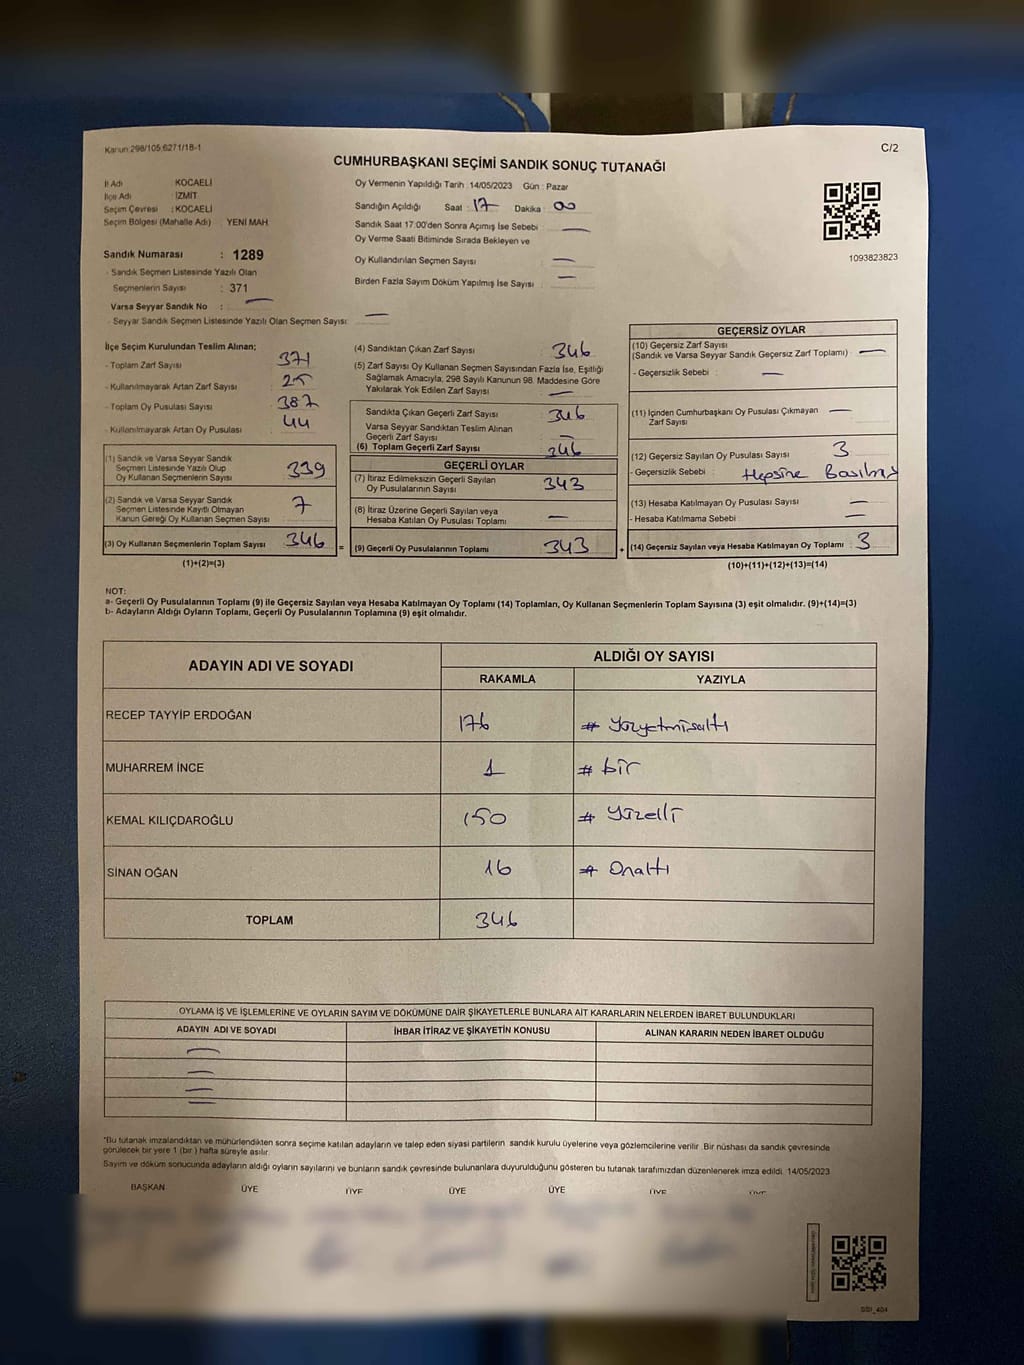 Kanun:298/105,6271/18-1
C/2
CUMHURBAŞKANI SEÇİMİ SANDIK SONUÇ TUTANAĞI
İl Adı : KOCAELİ
İlçe Adı : İZMİT
Seçim Çevresi : KOCAELİ
Seçim Bölgesi (Mahalle Adı) : YENİ MAH.
Sandık Numarası : 1289
- Sandık Seçmen Listesinde Yazılı Olan
Seçmenlerin Sayısı : 371
Varsa Seyyar Sandık No : —
- Seyyar Sandık Seçmen Listesinde Yazılı Olan Seçmen Sayısı: —
Oy Vermenin Yapıldığı Tarih : 14/05/2023 Gün : Pazar
Sandığın Açıldığı Saat : 17 Dakika : 00
Sandık Saat 17:00'den Sonra Açımış İse Sebebi : —
Oy Verme Saati Bitiminde Sırada Bekleyen ve
Oy Kullandırılan Seçmen Sayısı : —
Birden Fazla Sayım Döküm Yapılmış İse Sayısı : —
1093823823
İlçe Seçim Kurulundan Teslim Alınan;
- Toplam Zarf Sayısı : 371
- Kullanılmayarak Artan Zarf Sayısı : 25
- Toplam Oy Pusulası Sayısı : 387
- Kullanılmayarak Artan Oy Pusulası : 44
(1) Sandık ve Varsa Seyyar Sandık
Seçmen Listesinde Yazılı Olup
Oy Kullanan Seçmenlerin Sayısı : 339
(2) Sandık ve Varsa Seyyar Sandık
Seçmen Listesinde Kayıtlı Olmayan
Kanun Gereği Oy Kullanan Seçmen Sayısı : 7
(3) Oy Kullanan Seçmenlerin Toplam Sayısı : 346
(1)+(2)=(3)
=
(4) Sandıktan Çıkan Zarf Sayısı : 346
(5) Zarf Sayısı Oy Kullanan Seçmen Sayısından Fazla İse, Eşitliği
Sağlamak Amacıyla; 298 Sayılı Kanunun 98. Maddesine Göre
Yakılarak Yok Edilen Zarf Sayısı : —
Sandıkta Çıkan Geçerli Zarf Sayısı : 346
Varsa Seyyar Sandıktan Teslim Alınan
Geçerli Zarf Sayısı : —
(6) Toplam Geçerli Zarf Sayısı : 346
GEÇERLİ OYLAR
(7) İtiraz Edilmeksizin Geçerli Sayılan
Oy Pusulalarının Sayısı : 343
(8) İtiraz Üzerine Geçerli Sayılan veya
Hesaba Katılan Oy Pusulası Toplamı : —
(9) Geçerli Oy Pusulalarının Toplamı : 343
+
GEÇERSİZ OYLAR
(10) Geçersiz Zarf Sayısı
(Sandık ve Varsa Seyyar Sandık Geçersiz Zarf Toplamı) : —
- Geçersizlik Sebebi : —
(11) İçinden Cumhurbaşkanı Oy Pusulası Çıkmayan : —
Zarf Sayısı
(12) Geçersiz Sayılan Oy Pusulası Sayısı : 3
- Geçersizlik Sebebi : Hepsine Basılmış
(13) Hesaba Katılmayan Oy Pusulası Sayısı : —
- Hesaba Katılmama Sebebi : —
(14) Geçersiz Sayılan veya Hesaba Katılmayan Oy Toplamı : 3
(10)+(11)+(12)+(13)=(14)
NOT:
a- Geçerli Oy Pusulalarının Toplamı (9) ile Geçersiz Sayılan veya Hesaba Katılmayan Oy Toplamı (14) Toplamları, Oy Kullanan Seçmenlerin Toplam Sayısına (3) eşit olmalıdır. (9)+(14)=(3)
b- Adayların Aldığı Oyların Toplamı, Geçerli Oy Pusulalarının Toplamına (9) eşit olmalıdır.
ADAYIN ADI VE SOYADI
ALDIĞI OY SAYISI
RAKAMLA YAZIYLA
RECEP TAYYİP ERDOĞAN 176 # Yüzyetmişaltı
MUHARREM İNCE 1 # bir
KEMAL KILIÇDAROĞLU 150 # Yüzelli
SİNAN OĞAN 16 # Onaltı
TOPLAM 346
OYLAMA İŞ VE İŞLEMLERİNE VE OYLARIN SAYIM VE DÖKÜMÜNE DAİR ŞİKAYETLERLE BUNLARA AİT KARARLARIN NELERDEN İBARET BULUNDUKLARI
ADAYIN ADI VE SOYADI İHBAR İTİRAZ VE ŞİKAYETİN KONUSU ALINAN KARARIN NEDEN İBARET OLDUĞU
—
—
—
—
*Bu tutanak imzalandıktan ve mühürlendikten sonra seçime katılan adayların ve talep eden siyasi partilerin sandık kurulu üyelerine veya gözlemcilerine verilir. Bir nüshası da sandık çevresinde
görülecek bir yere 1 (bir ) hafta süreyle asılır.
Sayım ve döküm sonucunda adayların aldığı oyların sayılarını ve bunların sandık çevresinde bulunanlara duyurulduğunu gösteren bu tutanak tarafımızdan düzenlenerek imza edildi. 14/05/2023
BAŞKAN ÜYE ÜYE ÜYE ÜYE ÜYE ÜYE